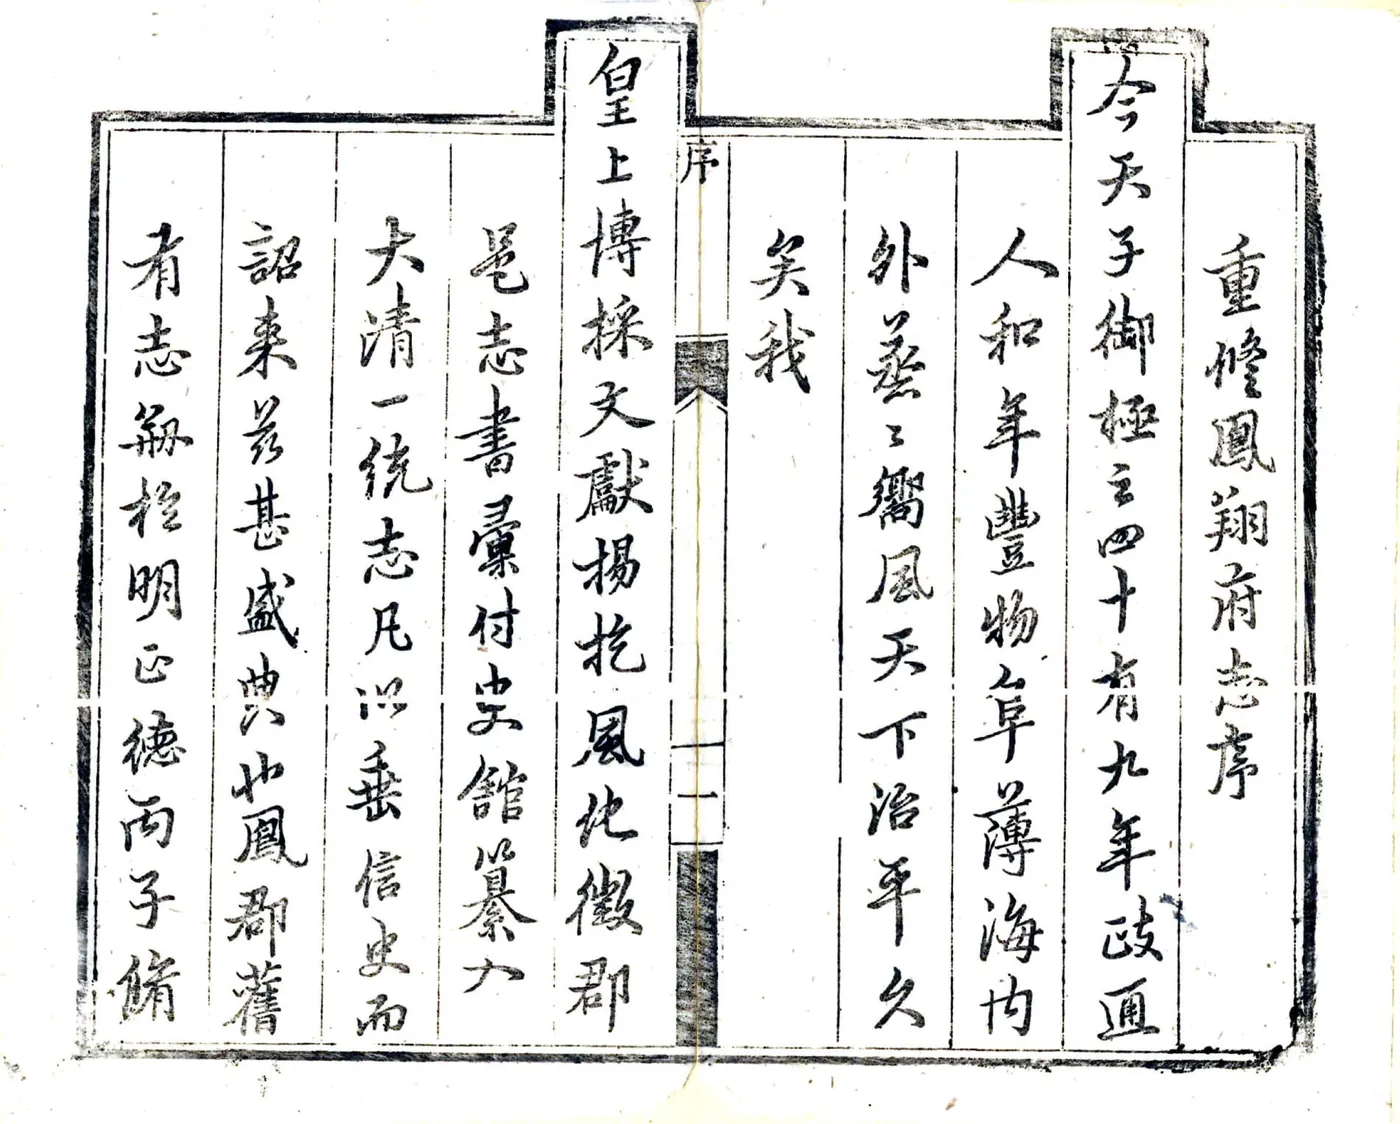 重修鳳翔府志序
今天子御極之四十有九年政通
人和年豐物阜薄海內
外蒸〻嚮風天下治平久
矣我
序
一
皇上博採文獻揚扢風化徵郡
邑志書彙付史館纂入
大清一統志凡以垂信史而
詔来兹甚盛典也鳳郡舊
有志刱於明正德丙子脩